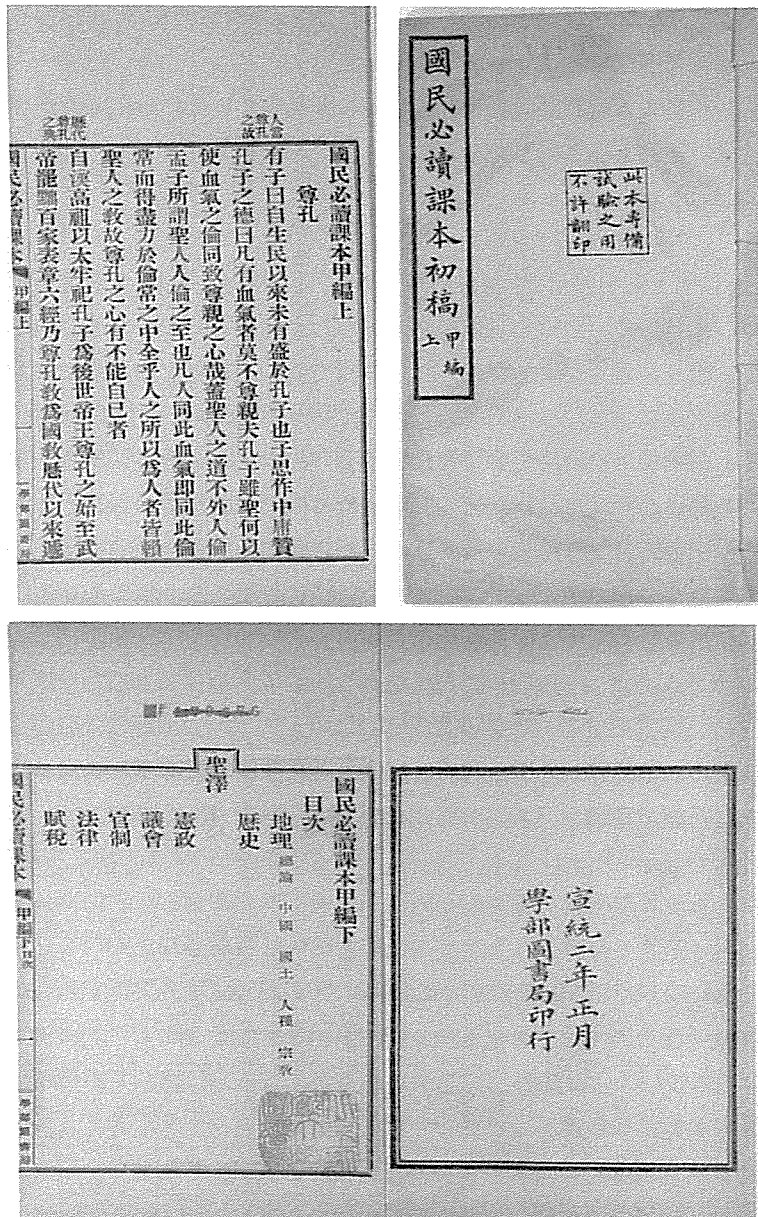 國民必讀課本初稿 甲編上
此本專備
試驗之用
不許翻印
國民必讀課本甲編上
尊孔
人當
尊孔
之故
有子曰自生民以來未有盛於孔子也子思作中庸贊
孔子之德曰凡有血氣者莫不尊親夫孔子雖聖何以
使血氣之倫同致尊親之心哉蓋聖人之道不外人倫
孟子所謂聖人人倫之至也凡人同此血氣即同此倫
常而得盡力於倫常之中全乎人之所以爲人者皆賴
聖人之教故尊孔之心有不能自已者
歷代
尊孔
之典
自漢高祖以太牢祀孔子爲後世帝王尊孔之始至武
帝罷黜百家表章六經乃尊孔教爲國教歷代以來遞
國民必讀課本 甲編上 一 學部圖書局
宣統二年正月
學部圖書局印行
國民必讀課本甲編下
目次
地理 總論 中國 國土 人種 宗教
歷史
聖澤
憲政
議會
官制
法律
賦稅
國民必讀課本 甲編下目次 一 學部圖書局